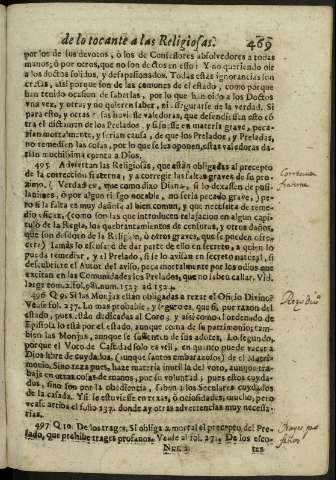 de lo tocante a las Religiosas. 469
por los de los devotos, ò los de Confessores absolvedores a todas
manos; ò por otros, que no son doctos en esso: Y no queriendo oir
a los doctos solidos, y desapasionados. Todas estas ignorancias son
crasas, assi porque son de las comunes de el estado, como porque
han tenido ocasion de saberlas, por lo que han oido a los Doctos
vna vez, y otras y no quieren saber, ni assegurarse de la verdad. Si
para esto, y otras las havi sse valedoras, que defendiessen esto cõ
tra el dictamen de los Prelados, y si fuesse en materia grave, peca-
rian mortalmente, y serian causa, de que los Prelados, y Preladas,
no remedien las cosas, por lo que se les oponen, estas valedoras da-
rian muchissima quenta a Dios.
495 Adviertan las Religiosas, que estàn obligadas al precepto
de la correccion fraterna, y a corregir las faltas graves de su pro-
ximo. (Verdad es, que como dixo Diana, si lo dexassen de pusi-
lanimes, ò por algun riesgo notable, no seria pecado grave,) pe-
ro si la falta es muy dañosa al bien comun, y que necessita de reme-
dio eficaz, (como son las que introducen relaxacion en algun capi-
tulo de la Regla, los quebrantamientos de censuras, y otros daños,
que son desdoro de la Religion, ò otros graves, que se pueden ofre-
cer) Iamàs lo escusarà de dar parte de ello en secreto, a quien lo
pueda remediar, y el Prelado, si se lo avisan en secreto natural, si
descubriere el Autor del aviso, peca mortalmente por los odios que
excitan en las Comunidades los Prelados, que no saben callar. Vid.
large tom. 2. fol. 981. num. 1523. ad 1524.
496 Q. 9. Si las Monjas estàn obligadas a rezar el Oficio Divino?
Vease fol. 237. Lo mas probable, y seguro es, que si, por razon del
estado, pues estàn dedicadas al Coro; y assi como el ordenado de
Epistola lo està por el estado, aunque coma de su patrimonio; tam-
bien las Monjas, aunque se sustenten de sus adotes. Lo segundo,
porque el Voto de Castidad solo es util, en quanto puede vacar a
Dios libre de cuydados. (aunque santos embarazosos) de el Matri-
monio. Sino reza pues, haze materia inutil la del voto, aunque tra-
baje en otras cosas de manos, por su voluntad; pues estos cuyda-
dos, sino son que la obediencia, saben a los Seculares cuydados
de la casada. Y si se estuviesse en rexas, ò ociosidades, mucho, pero
vease arriba el folio 237. donde ay otras advertencias muy neces-
sarias.
497 Q. 10. De los trages. Si obliga a mortal el precepto del Pre-
lado, que prohibe trages profanos? Vease al fol. 271. De los esco-
tes
Correccion
fraterna
Rezo Div.º